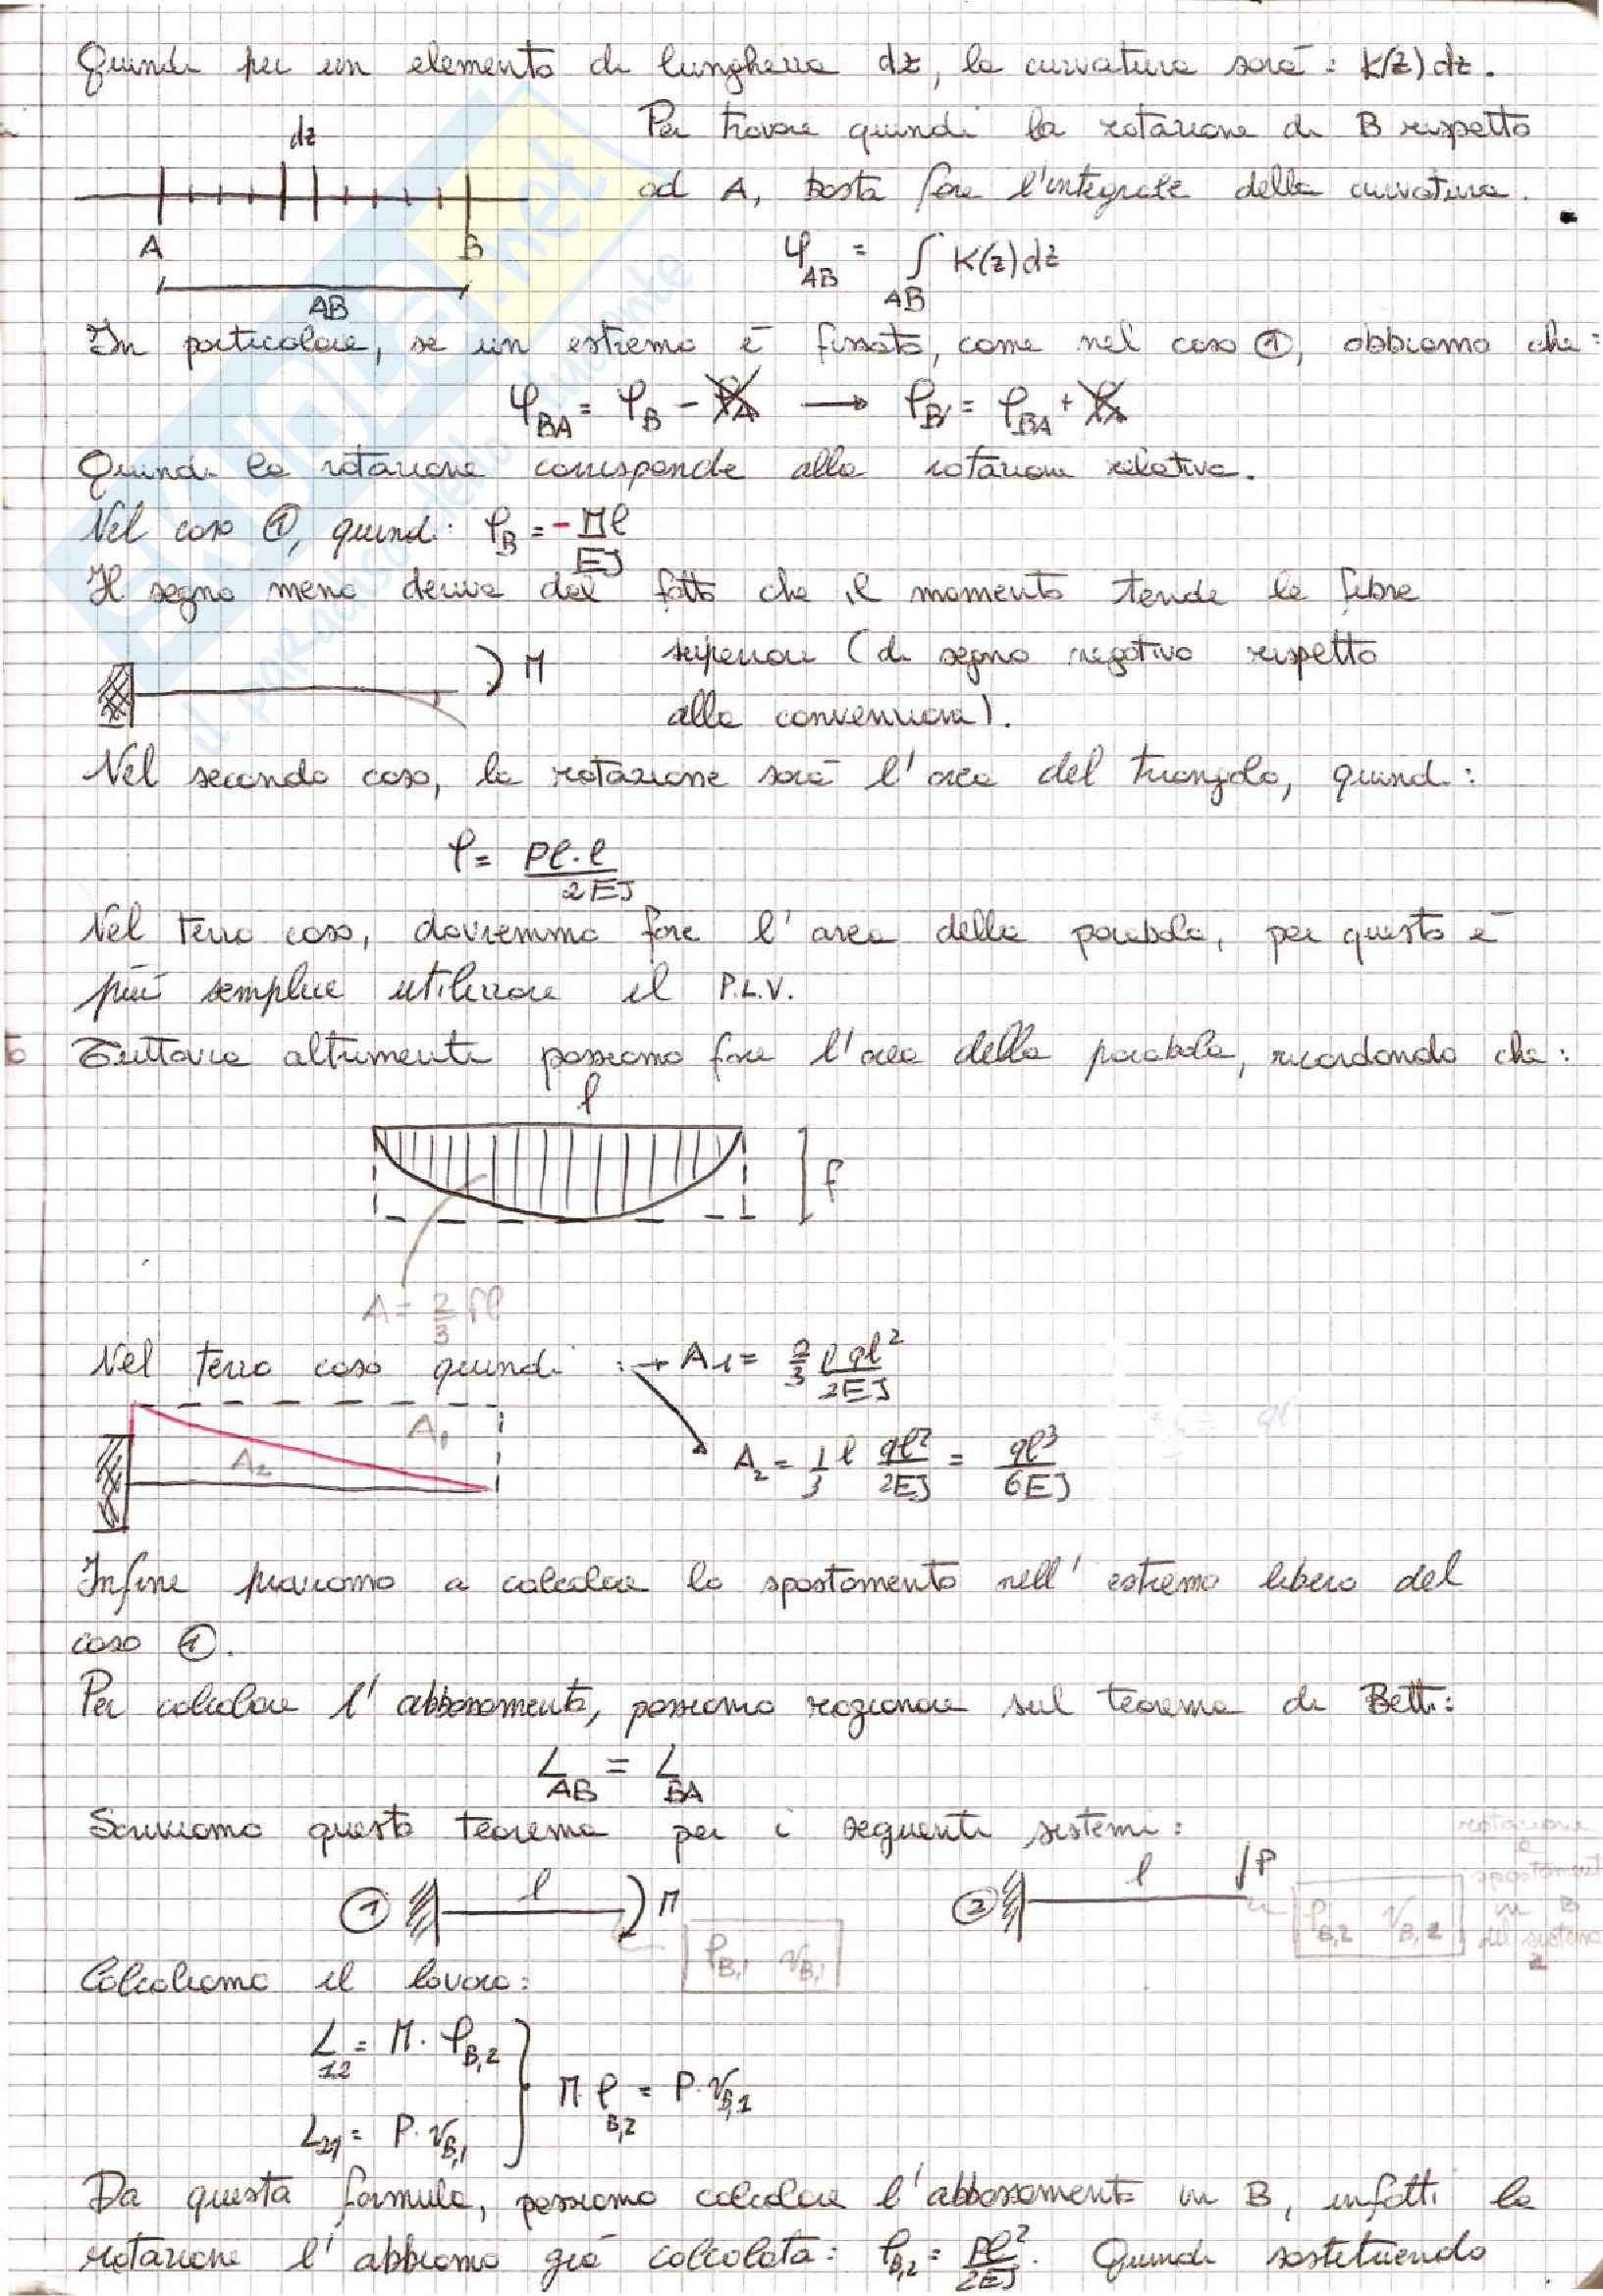 Quindi per un elemento di lunghezza dz, la curvatura sarà: K(z)dz.
dz
Per trovare quindi la rotazione di B rispetto
ad A, basta fare l'integrale della curvatura.
A B
AB
φ_AB = ∫_AB K(z)dz
In particolare, se un estremo è fissato, come nel caso ①, abbiamo che:
φ_BA = φ_B - φ_A → φ_B = φ_BA + φ_A
Quindi la rotazione corrisponde alla rotazione relativa.
Nel caso ①, quindi: φ_B = - Ml/EJ
Il segno meno deriva dal fatto che il momento tende le fibre
superiori (di segno negativo rispetto
alla convenzione).
M
Nel secondo caso, la rotazione sarà l'area del triangolo, quindi:
φ = Pl·l/2EJ
Nel terzo caso, dovremmo fare l'area della parabola, per questo è
più semplice utilizzare il P.L.V.
Tuttavia altrimenti possiamo fare l'area della parabola, ricordando che:
l
f
A = 2/3 fl
Nel terzo caso quindi: → A1 = 2/3 l ql²/2EJ
A1
A2
A2 = 1/3 l ql²/2EJ = ql³/6EJ
Infine proviamo a calcolare lo spostamento nell'estremo libero del
caso ①.
Per calcolare l'abbassamento, possiamo ragionare sul teorema di Betti:
L_AB = L_BA
Scriviamo questo teorema per i seguenti sistemi:
① l M
φ_B,1 v_B,1
② l P
φ_B,2 v_B,2
rotazione
e
spostamenti
in B
del sistema
2
Calcoliamo il lavoro:
L_12 = M·φ_B,2
L_21 = P·v_B,1
M·φ_B,2 = P·v_B,1
Da questa formula, possiamo calcolare l'abbassamento in B, infatti la
rotazione l'abbiamo già calcolata: φ_B,2 = Pl²/2EJ. Quindi sostituendo
SKUOLA.net
il paradiso dello studente